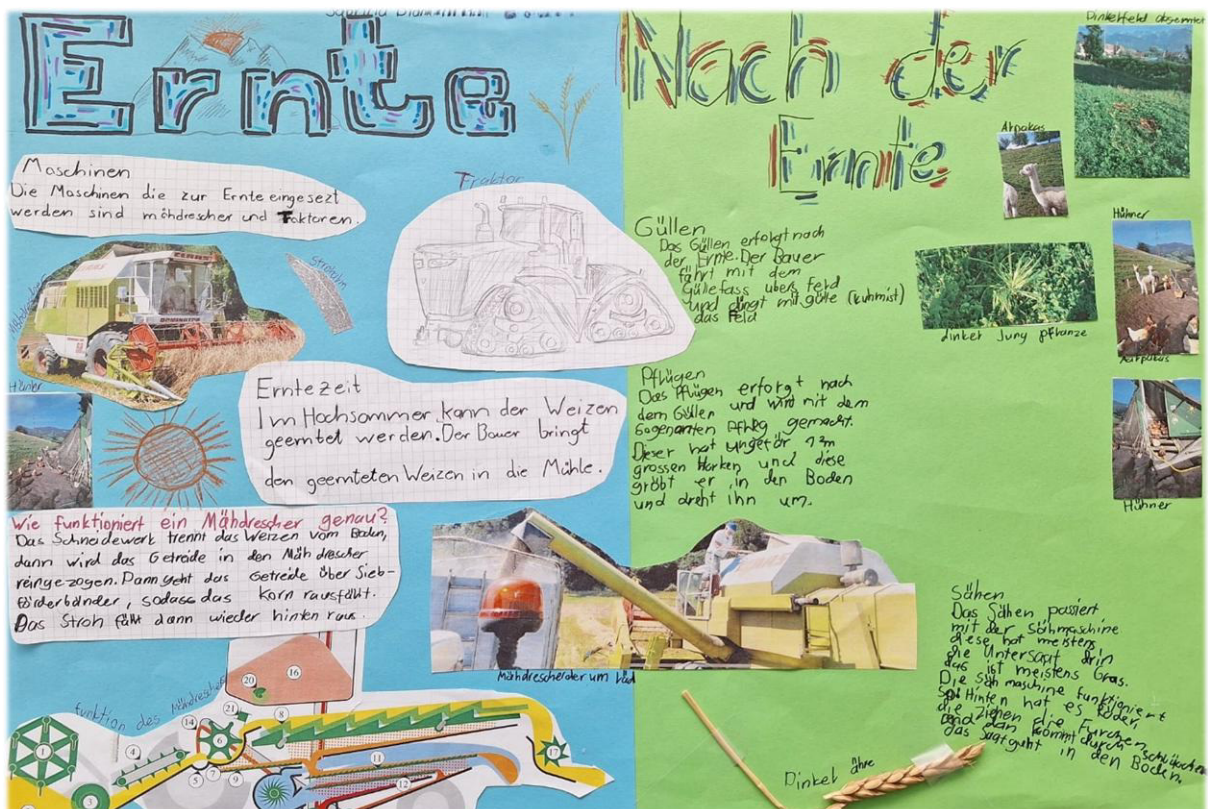 Ernte
Maschinen
Die Maschinen die zur Ernte eingesezt
werden sind mähdrescher und Traktoren.
Traktor
CLAAS
Strohalm
Hüner
Erntezeit
Im Hochsommer kann der Weizen
geerntet werden. Der Bauer bringt
den geernteten Weizen in die Mühle.
Wie funktioniert ein Mähdrescher genau?
Das Schneidewerk trennt das Weizen vom Boden,
dann wird das Getreide in den Mähdrescher
reingezogen. Dann geht das Getreide über Sieb-
förderbänder, sodass das Korn rausfällt.
Das Stroh fält dann wieder hinten raus.
funktion des Mähdreschers
1
3
4
5
7
9
14
6
21
20
16
8
11
12
17
Nach der
Ernte
Dinkelfeld abgeerntet
Alpakas
Hühner
Güllen
Das Güllen erfolgt nach
der Ernte. Der Bauer
fährt mit dem
Güllefass übers Feld
und düngt mit gülle (kuhmist)
das Feld
dinkel Jung pflanze
Alpakas
Pflügen
Das Pflügen erforgt nach
dem Güllen und wird mit dem
Sogenanten Pflug gemacht.
Dieser hat ungefär 12m
grossen Harken und diese
gräbt er in den Boden
und dreht ihn um.
Hühner
Mähdrescher der um
Sähen
Das Sähen passiert
mit der Sähmaschine
diese hat meistens
die Untersaat drin
das ist meistens Gras.
Die Sähmaschine funktioniert
So: Hinten hat es Räder,
die Ziehen die Furchen
und dan kommt durch
das Saatguht in den Boden.
Dinkel ähre